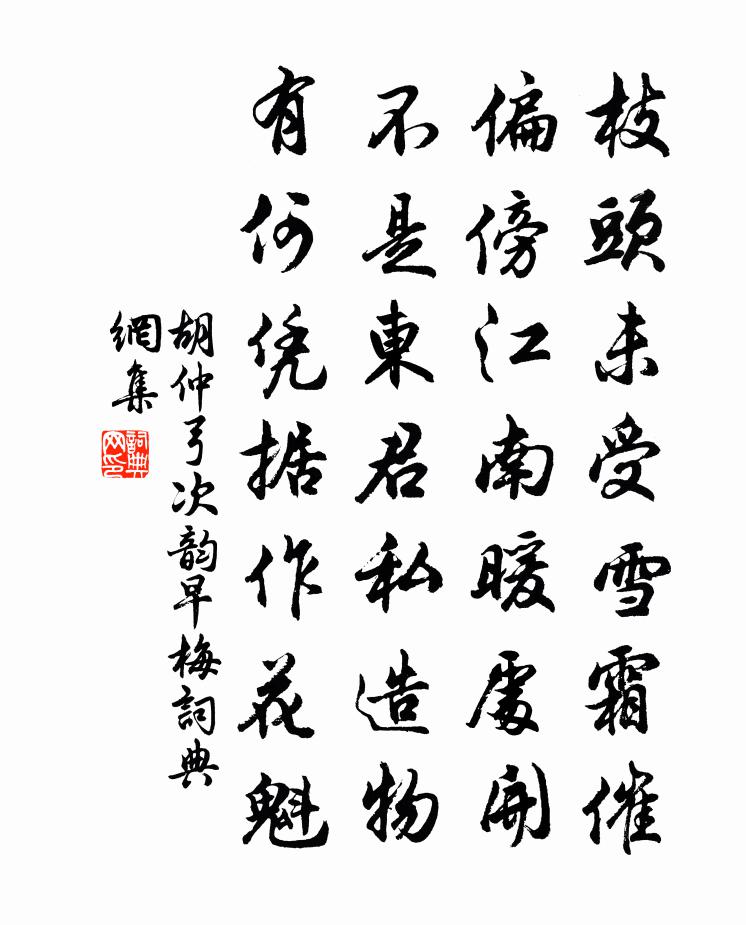 枝頭未受雪霜催
偏傍江南暖處開
不是東君私造物
有何凭据作花魁
胡仲弓次韵早梅詞典
網集
詞典網印